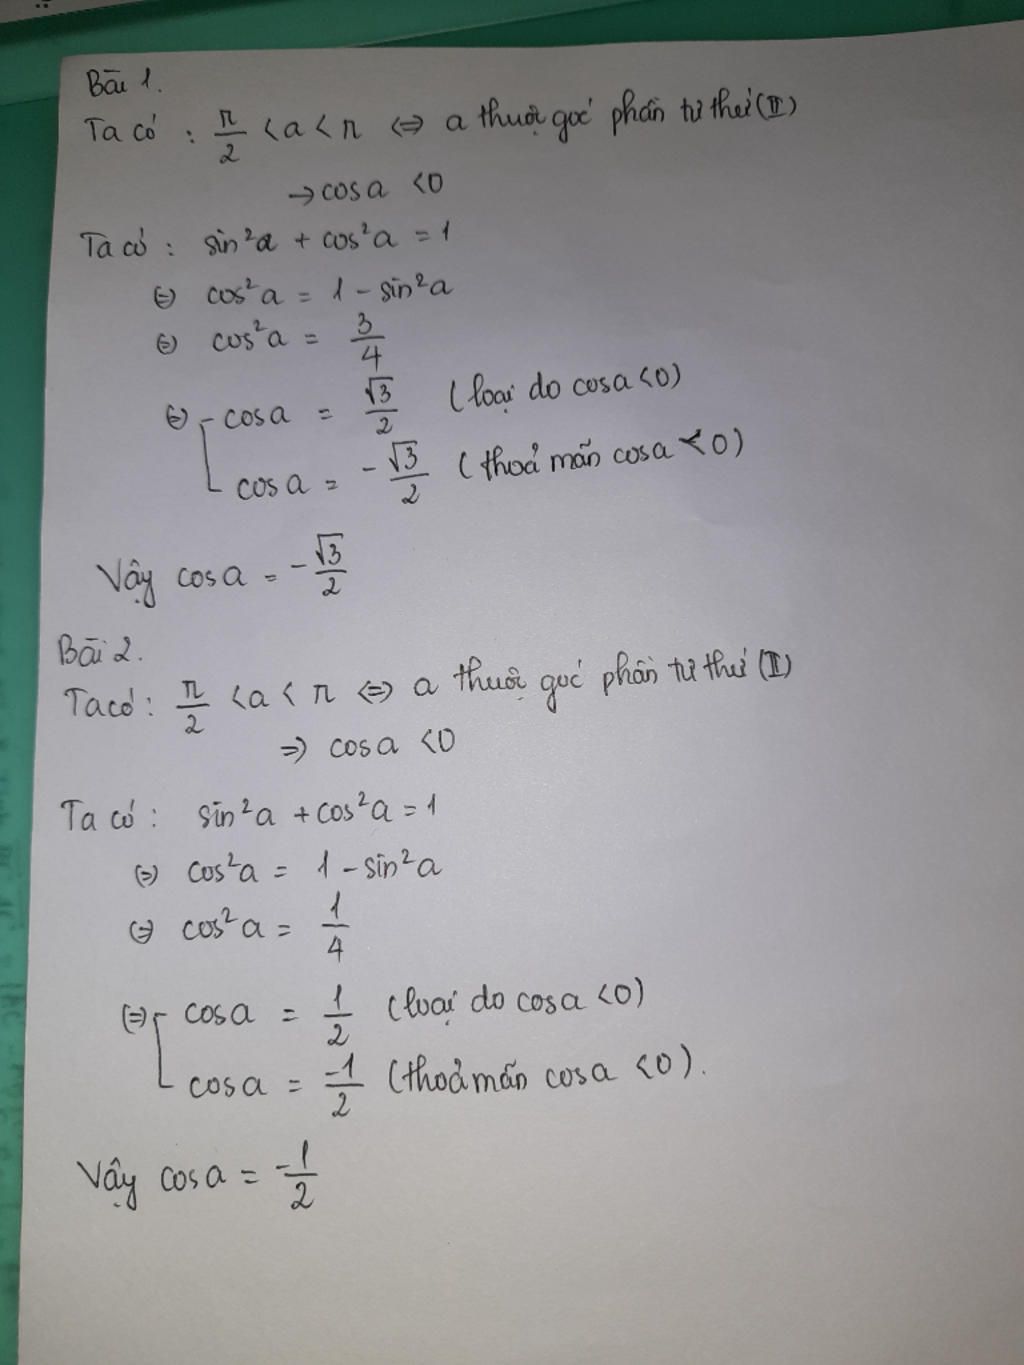 Bài 1.
Ta có : π/2 < a < π <=> a thuộc góc phần tư thứ (II)
→ cos a < 0
Ta có : sin²a + cos²a = 1
<=> cos²a = 1 - sin²a
<=> cos²a = 3/4
<=> [ cos a = √3/2 (loại do cos a < 0)
cos a = -√3/2 (thoả mãn cos a < 0)
Vậy cos a = -√3/2
Bài 2.
Ta có : π/2 < a < π <=> a thuộc góc phần tư thứ (II)
=> cos a < 0
Ta có : sin²a + cos²a = 1
<=> cos²a = 1 - sin²a
<=> cos²a = 1/4
<=> [ cos a = 1/2 (loại do cos a < 0)
cos a = -1/2 (thoả mãn cos a < 0).
Vậy cos a = -1/2